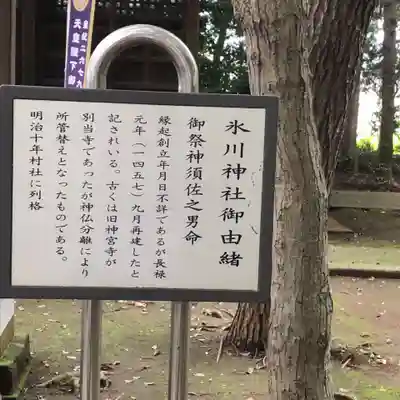 氷川神社御由緒
御祭神須佐之男命
縁起創立年月日不詳であるが長禄
元年（一四五七）九月再建したと
記されいる。古くは旧神宮寺が
別当寺であったが神仏分離により
所管替えとなったものである。
明治十年村社に列格
皇紀二六七九
天皇陛下御